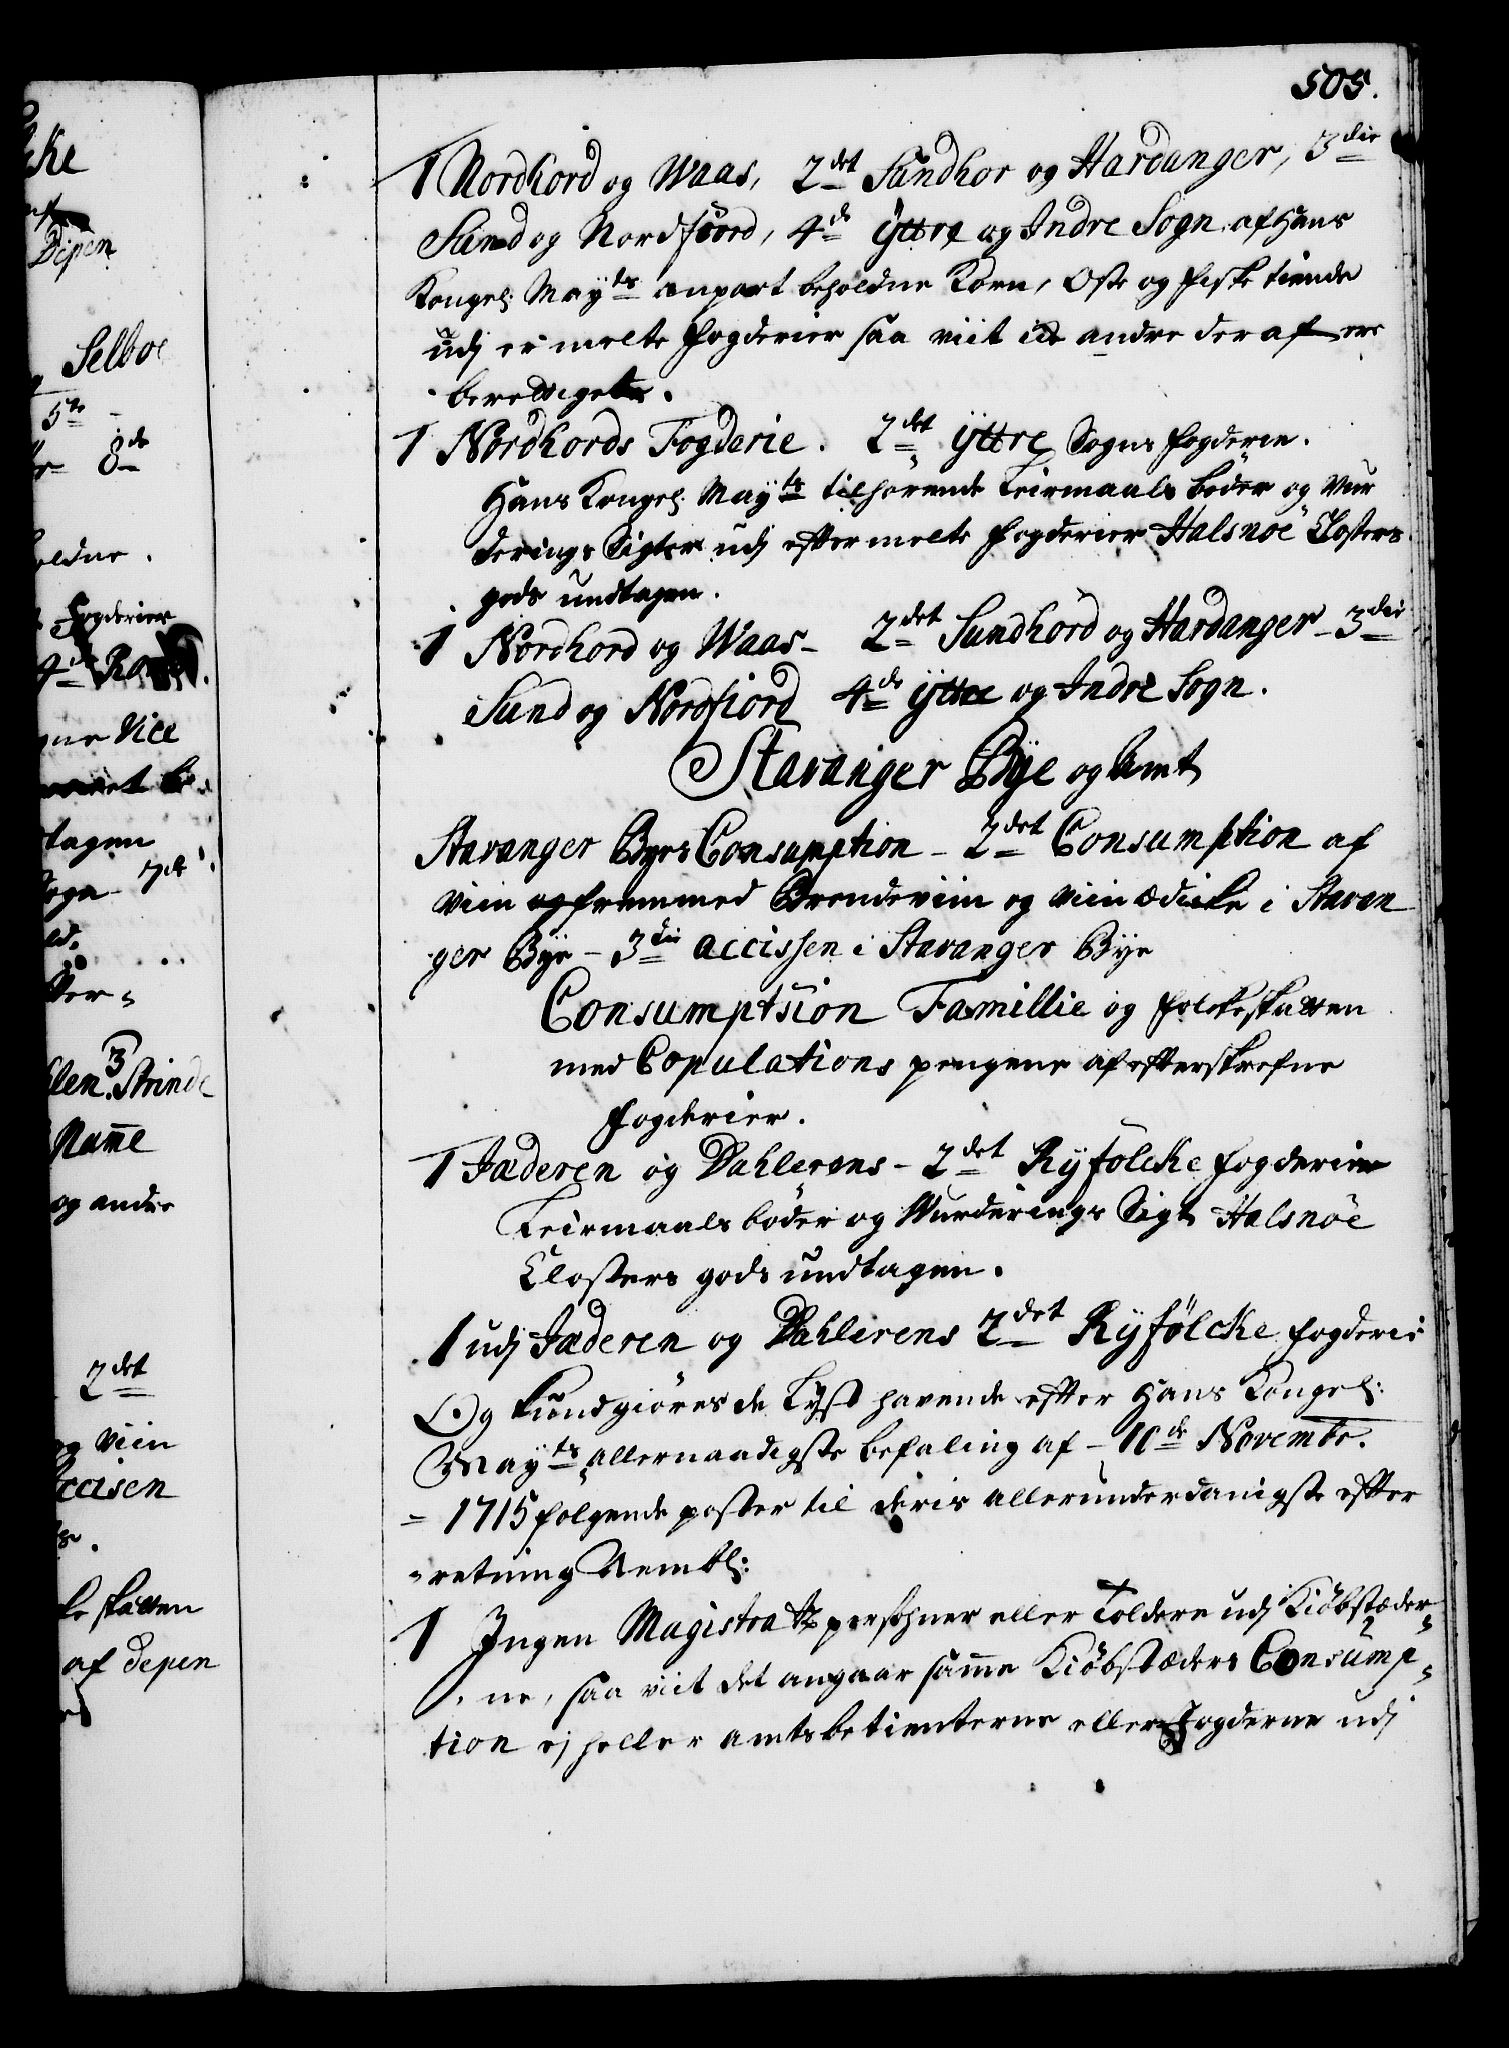 505.
1 Nordhord og Waas, 2det Sundhor og Hardanger, 3die
Sund og Nordfiord, 4de ÿttre og Indre Sogn af Hans
Kongel: Maÿts anpart beholdne Korn, Oste og fiske tiende
udj ermelte fogderier saa viit ide andre der af ere
berettiget.
1 Nordhords Fogderie. 2det ÿttre Sogns fogderie.
Hans Kongel: Maÿts tilhørende Leirmaals bøder og Vur
derings Sigter udj effter melte fogderier Halsnöe Closters
gods undtagen.
1 Nordhord og Waas - 2det Sundhord og Hardanger - 3die
Sund og Nordfiord 4de ÿttre og Indre Sogn.
Stavanger Bÿe og Amt
Stavanger Byes Consumption - 2det Consumption af
Viin og fremmed Brendeviin og Viin ædicke i Stavan
ger Bÿe - 3die accissen i Stavanger Bÿe
Consumption Famillie og folckeskatten
med Copulations pengene af efterskrefne
fogderier.
1 Jæderen og Dahlerens - 2det Rÿfölcke fogderier
Leirmaals bøder og Wurderings Sigt Halsnöe
Closters gods undtagen.
1 udj Jæderen og Dahlerens 2det Rÿfölcke fogderie
Og kundgiöres de Lÿst havende effter Hans Kongel:
Maÿts allernaadigste befaling af - 10de Novembr.
= 1715 folgende poster til deris allerunderdanigste effter
= retning Nembl:
1 Ingen Magistrats persohner eller Toldere udj Kiöbstæder=
ne, saa viit det angaar samme Kiöbstæders Consump=
tion ej heller amtsbetienterne eller Fogderne udj